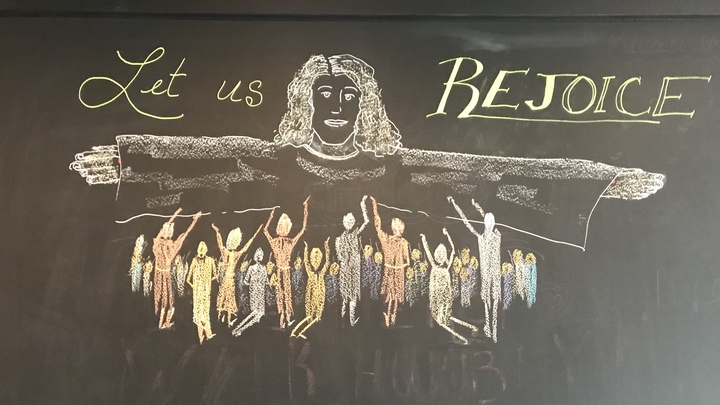 Let us REJOICE